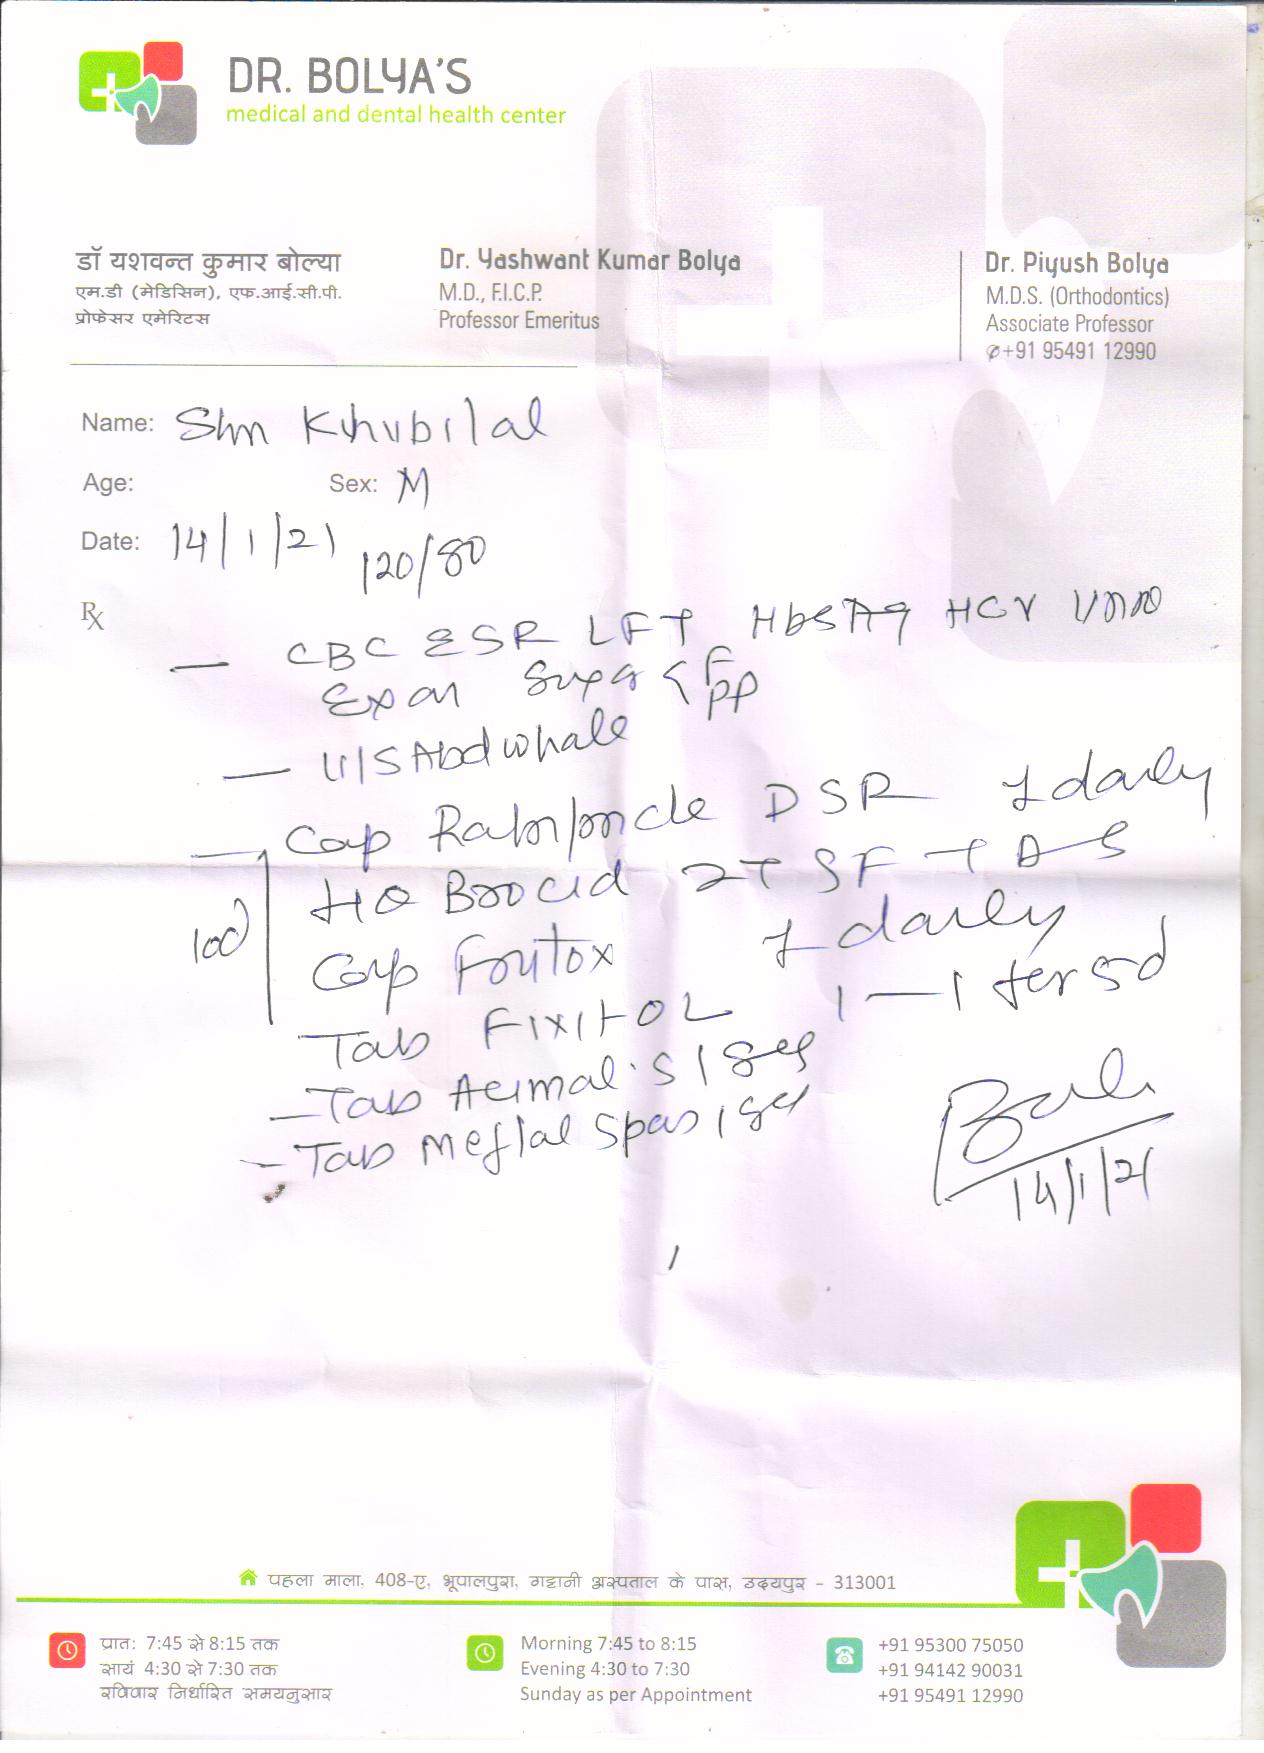 DR. BOLYA'S
medical and dental health center
डॉ यशवन्त कुमार बोल्या
एम.डी (मेडिसिन), एफ.आई.सी.पी.
प्रोफेसर एमेरिटस
Dr. Yashwant Kumar Bolya
M.D., F.I.C.P.
Professor Emeritus
Dr. Piyush Bolya
M.D.S. (Orthodontics)
Associate Professor
+91 95491 12990
Name: Shri Khubilal
Age: Sex: M
Date: 14/1/21
120/80
Rx
— CBC ESR LFT HbsAg HCV
Sugar < F
PP
— U/S Abd whole
— Cap DSR 1 daily
2T SF TDS
Cap 1 daily
10d
Tab FIXITOL 1—1 for 5d
— Tab
— Tab Meftal Spas
14/1/21
पहला माला, 408-ए, भूपालपुरा, गट्टानी अस्पताल के पास, उदयपुर - 313001
प्रात: 7:45 से 8:15 तक
सायं 4:30 से 7:30 तक
रविवार निर्धारित समयनुसार
Morning 7:45 to 8:15
Evening 4:30 to 7:30
Sunday as per Appointment
+91 95300 75050
+91 94142 90031
+91 95491 12990